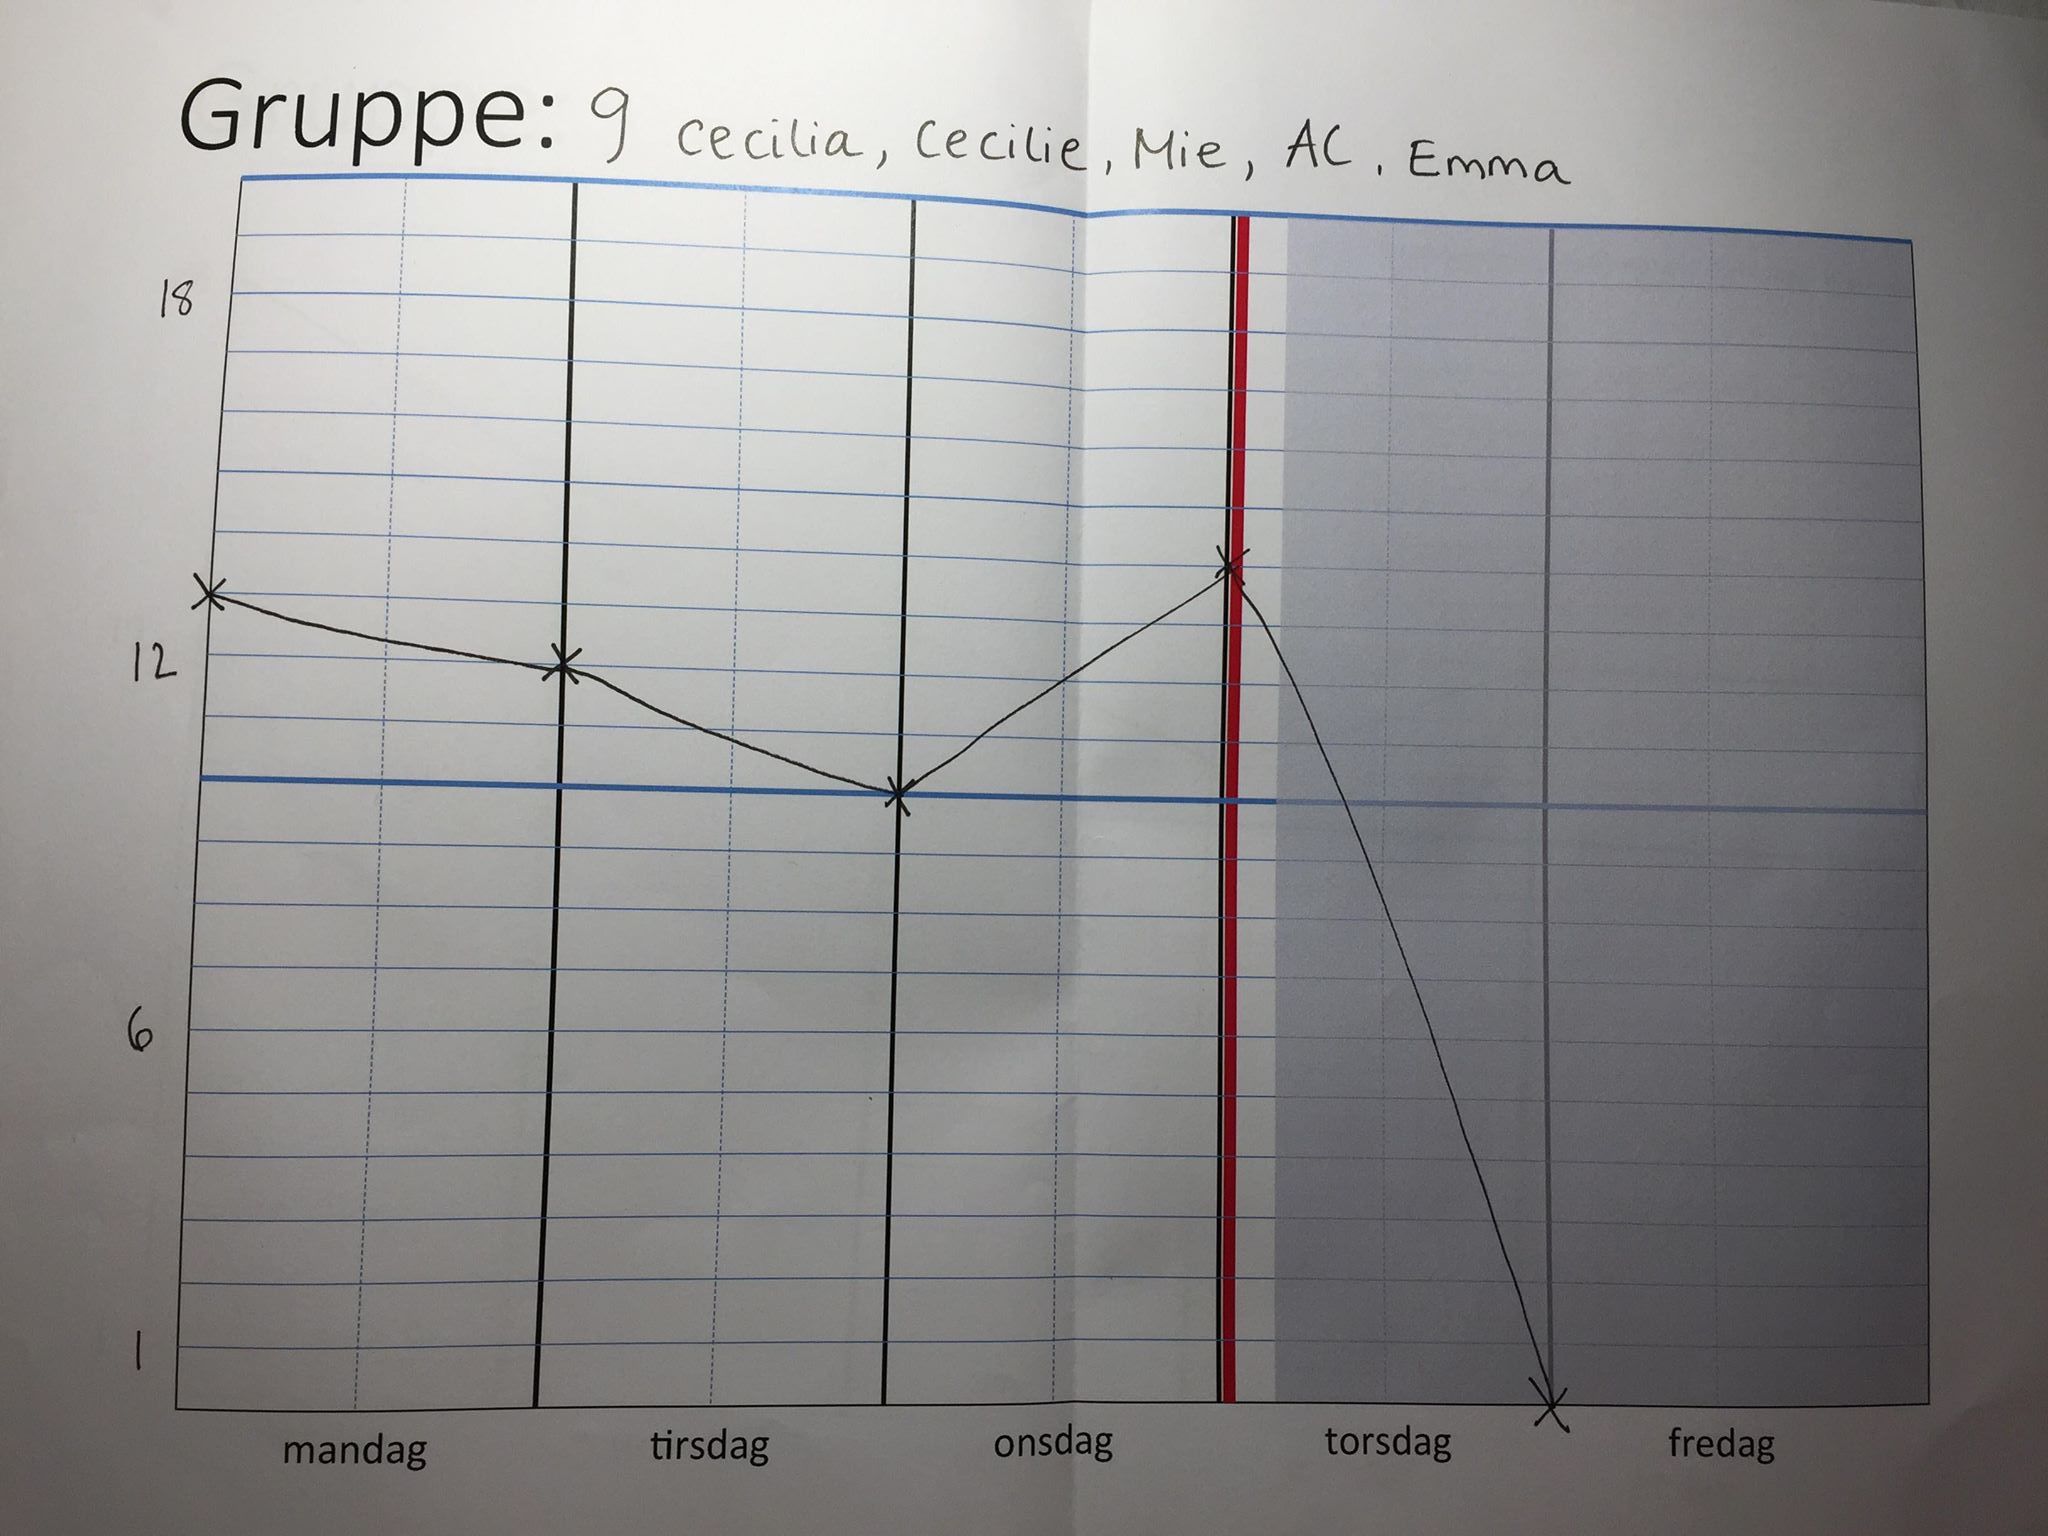 Gruppe: 9 Cecilia, Cecilie, Mie, AC, Emma
18
12
6
1
mandag tirsdag onsdag torsdag fredag